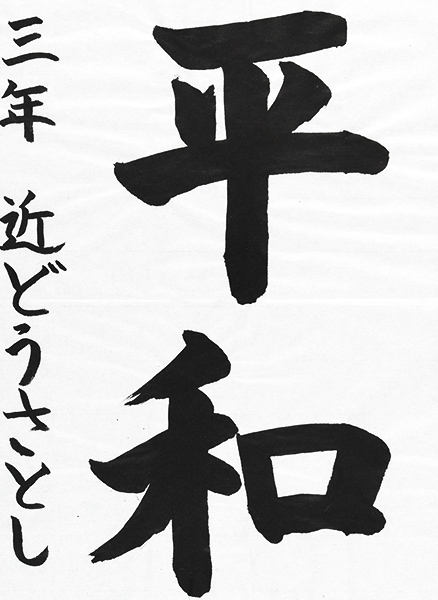 平和
三年 近どうさとし